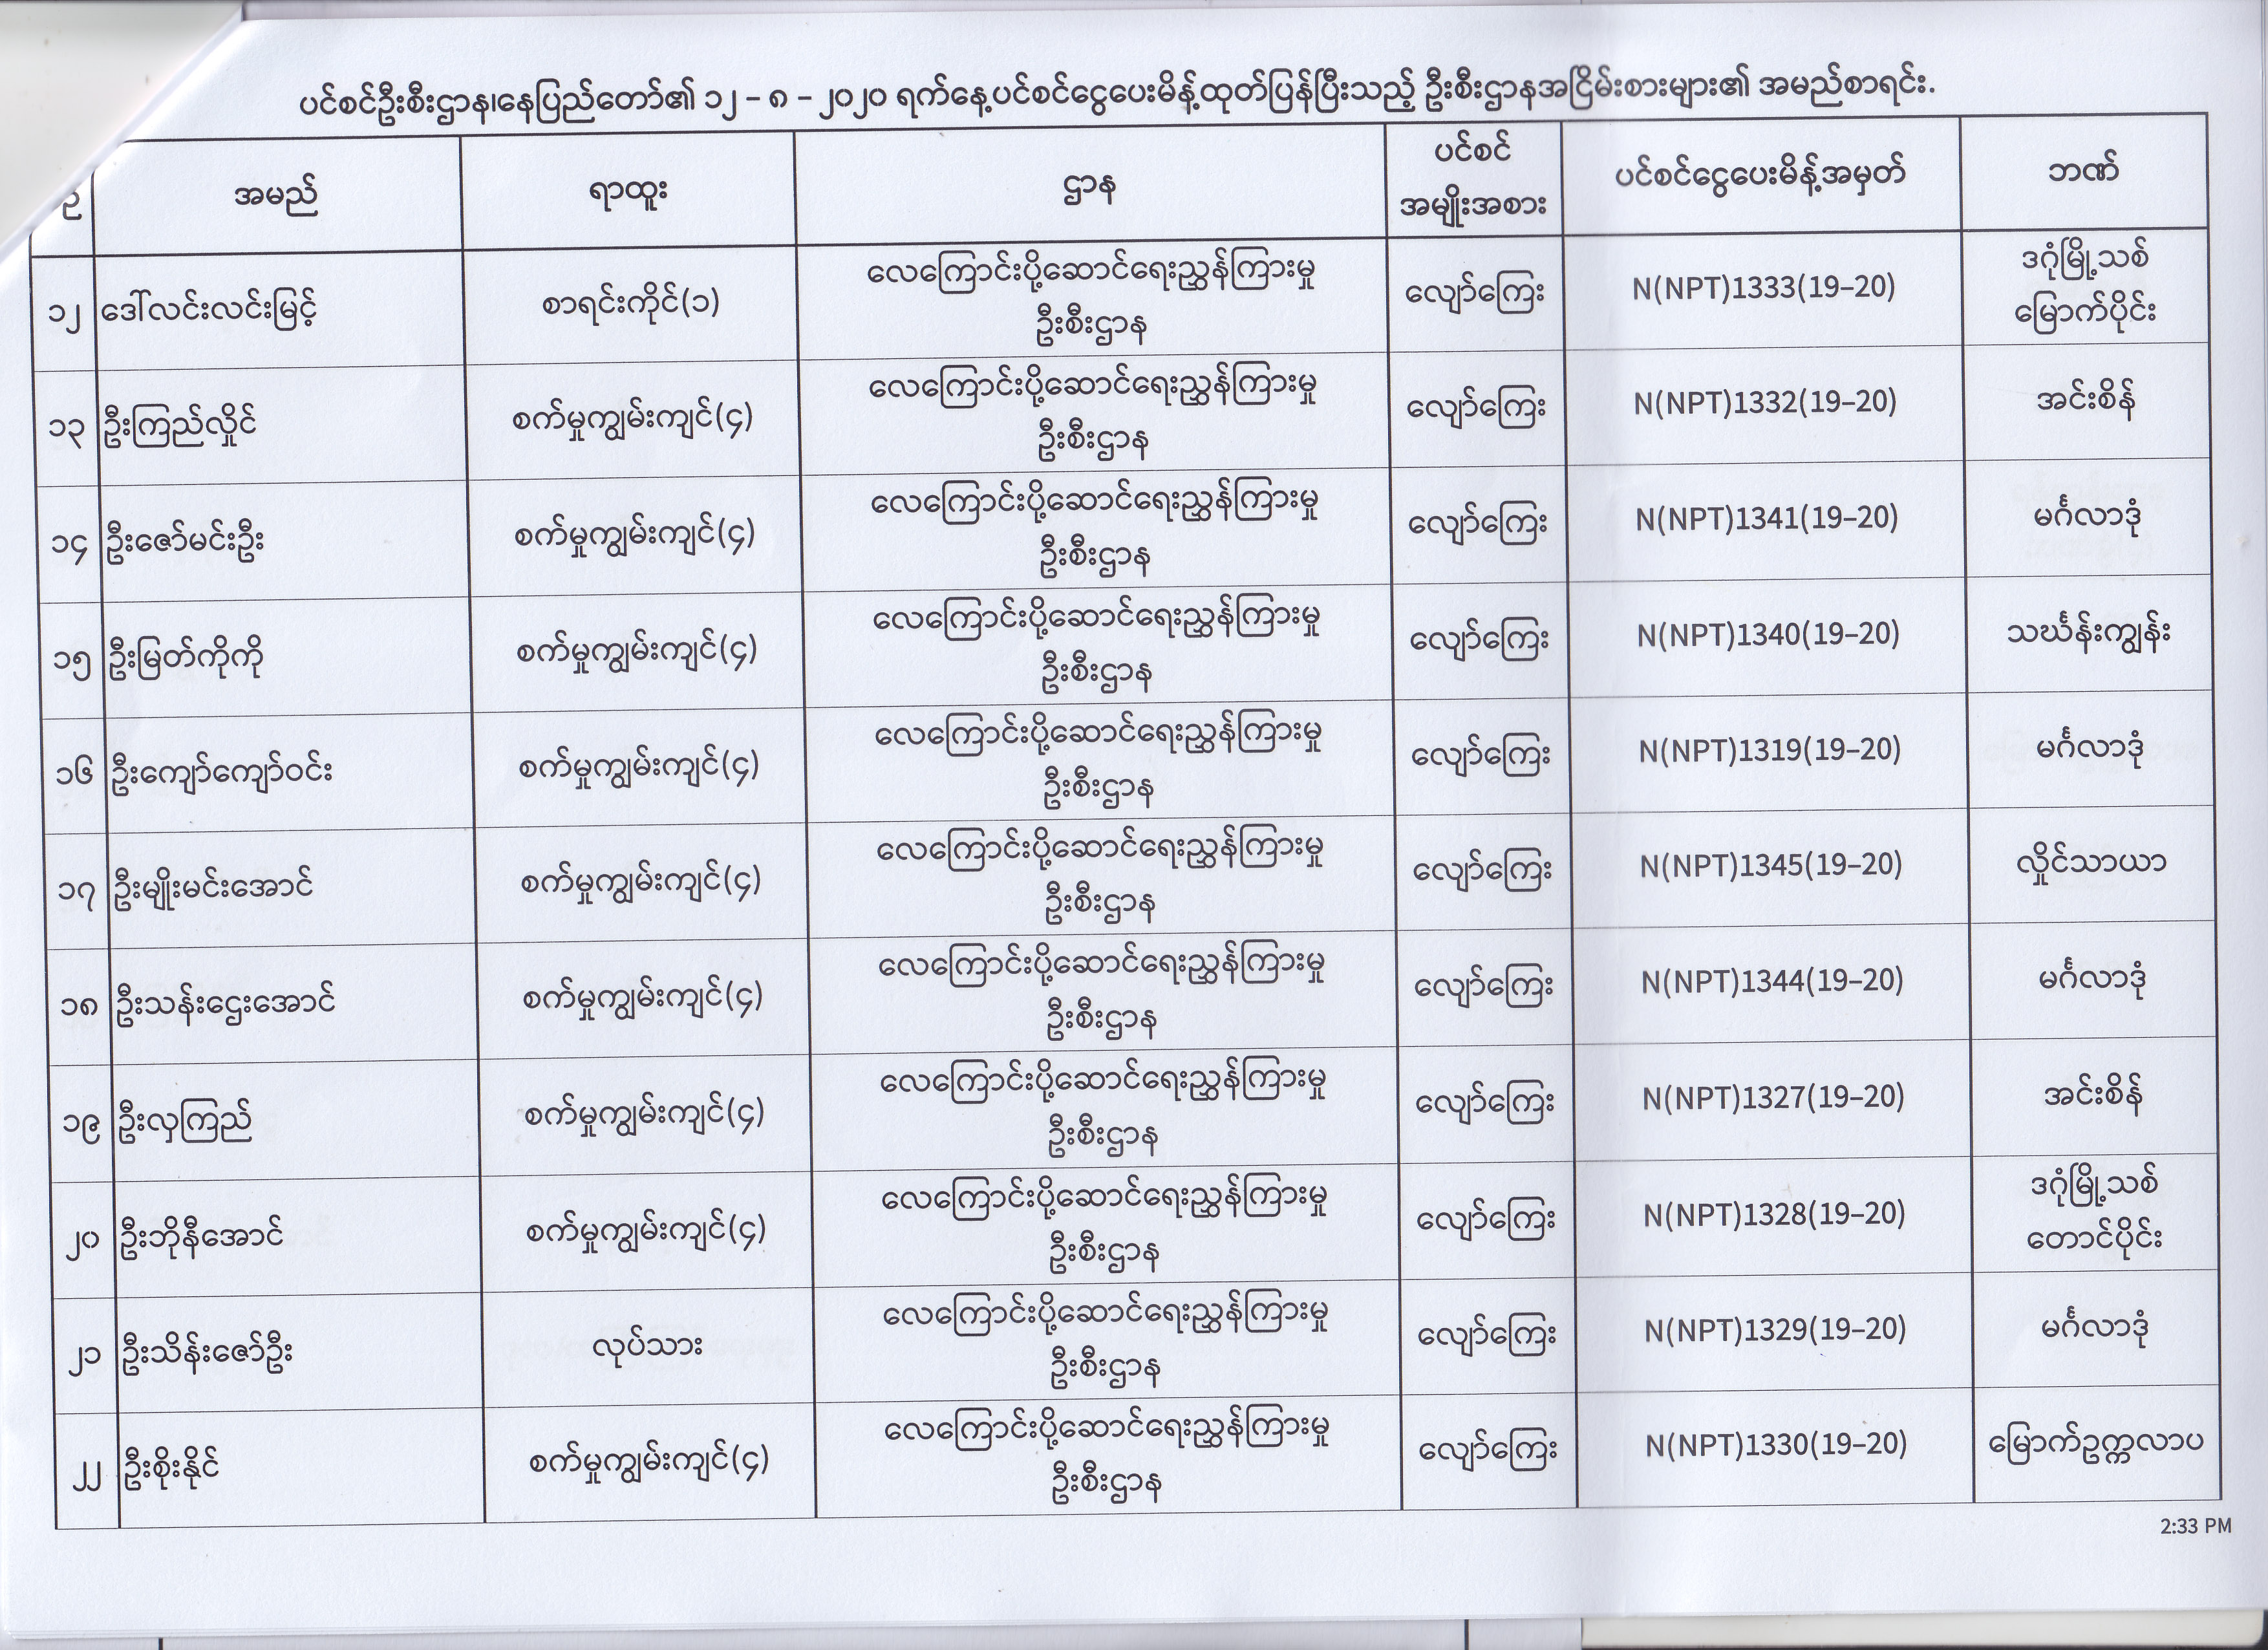 ပင်စင်ဦးစီးဌာန၊နေပြည်တော်၏ ၁၂ – ၈ – ၂၀၂၀ ရက်နေ့ပင်စင်ငွေပေးမိန့်ထုတ်ပြန်ပြီးသည့် ဦးစီးဌာနအငြိမ်းစားများ၏ အမည်စာရင်း.
ဉ အမည် ရာထူး ဌာန ပင်စင် အမျိုးအစား ပင်စင်ငွေပေးမိန့်အမှတ် ဘဏ်
၁၂ ဒေါ်လင်းလင်းမြင့် စာရင်းကိုင်(၁) လေကြောင်းပို့ဆောင်ရေးညွှန်ကြားမှု ဦးစီးဌာန လျော်ကြေး N(NPT)1333(19–20) ဒဂုံမြို့သစ် မြောက်ပိုင်း
၁၃ ဦးကြည်လှိုင် စက်မှုကျွမ်းကျင်(၄) လေကြောင်းပို့ဆောင်ရေးညွှန်ကြားမှု ဦးစီးဌာန လျော်ကြေး N(NPT)1332(19–20) အင်းစိန်
၁၄ ဦးဇော်မင်းဦး စက်မှုကျွမ်းကျင်(၄) လေကြောင်းပို့ဆောင်ရေးညွှန်ကြားမှု ဦးစီးဌာန လျော်ကြေး N(NPT)1341(19–20) မင်္ဂလာဒုံ
၁၅ ဦးမြတ်ကိုကို စက်မှုကျွမ်းကျင်(၄) လေကြောင်းပို့ဆောင်ရေးညွှန်ကြားမှု ဦးစီးဌာန လျော်ကြေး N(NPT)1340(19–20) သင်္ဃန်းကျွန်း
၁၆ ဦးကျော်ကျော်ဝင်း စက်မှုကျွမ်းကျင်(၄) လေကြောင်းပို့ဆောင်ရေးညွှန်ကြားမှု ဦးစီးဌာန လျော်ကြေး N(NPT)1319(19–20) မင်္ဂလာဒုံ
၁၇ ဦးမျိုးမင်းအောင် စက်မှုကျွမ်းကျင်(၄) လေကြောင်းပို့ဆောင်ရေးညွှန်ကြားမှု ဦးစီးဌာန လျော်ကြေး N(NPT)1345(19–20) လှိုင်သာယာ
၁၈ ဦးသန်းဌေးအောင် စက်မှုကျွမ်းကျင်(၄) လေကြောင်းပို့ဆောင်ရေးညွှန်ကြားမှု ဦးစီးဌာန လျော်ကြေး N(NPT)1344(19–20) မင်္ဂလာဒုံ
၁၉ ဦးလှကြည် စက်မှုကျွမ်းကျင်(၄) လေကြောင်းပို့ဆောင်ရေးညွှန်ကြားမှု ဦးစီးဌာန လျော်ကြေး N(NPT)1327(19–20) အင်းစိန်
၂၀ ဦးဘိုနီအောင် စက်မှုကျွမ်းကျင်(၄) လေကြောင်းပို့ဆောင်ရေးညွှန်ကြားမှု ဦးစီးဌာန လျော်ကြေး N(NPT)1328(19–20) ဒဂုံမြို့သစ် တောင်ပိုင်း
၂၁ ဦးသိန်းဇော်ဦး လုပ်သား လေကြောင်းပို့ဆောင်ရေးညွှန်ကြားမှု ဦးစီးဌာန လျော်ကြေး N(NPT)1329(19–20) မင်္ဂလာဒုံ
၂၂ ဦးစိုးနိုင် စက်မှုကျွမ်းကျင်(၄) လေကြောင်းပို့ဆောင်ရေးညွှန်ကြားမှု ဦးစီးဌာန လျော်ကြေး N(NPT)1330(19–20) မြောက်ဥက္ကလာပ
2:33 PM